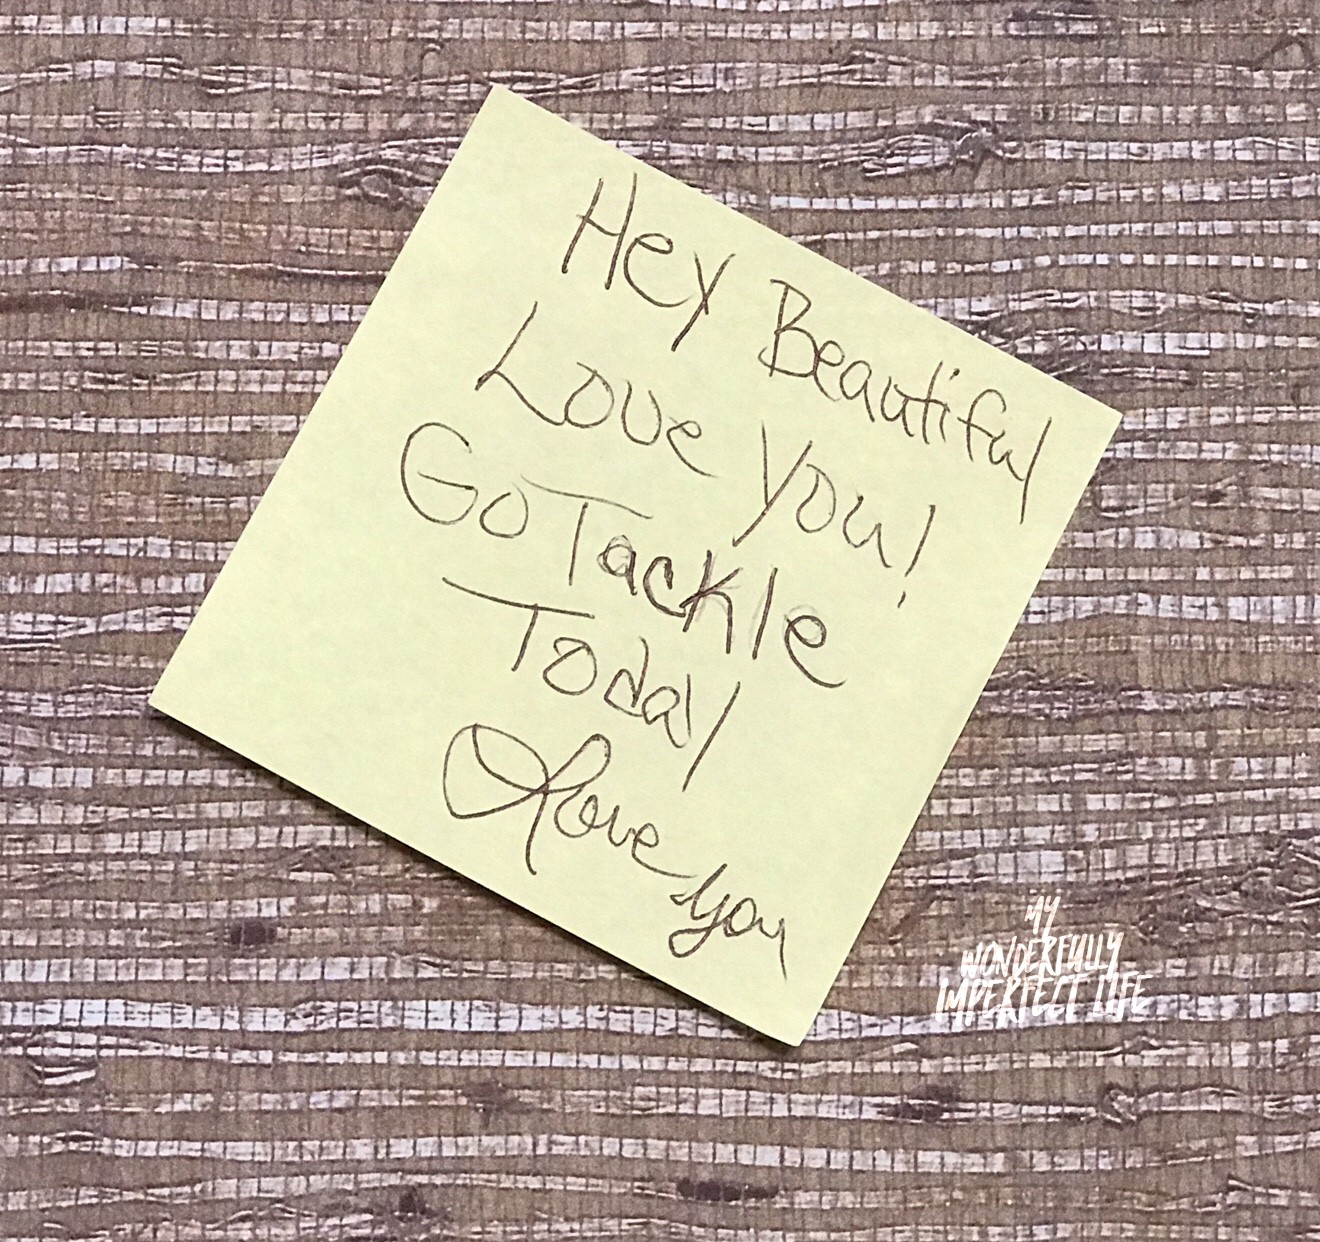 Hey Beautiful
Love you!
Go Tackle
Today
Love you
MY
WONDERFULLY
IMPERFECT LIFE